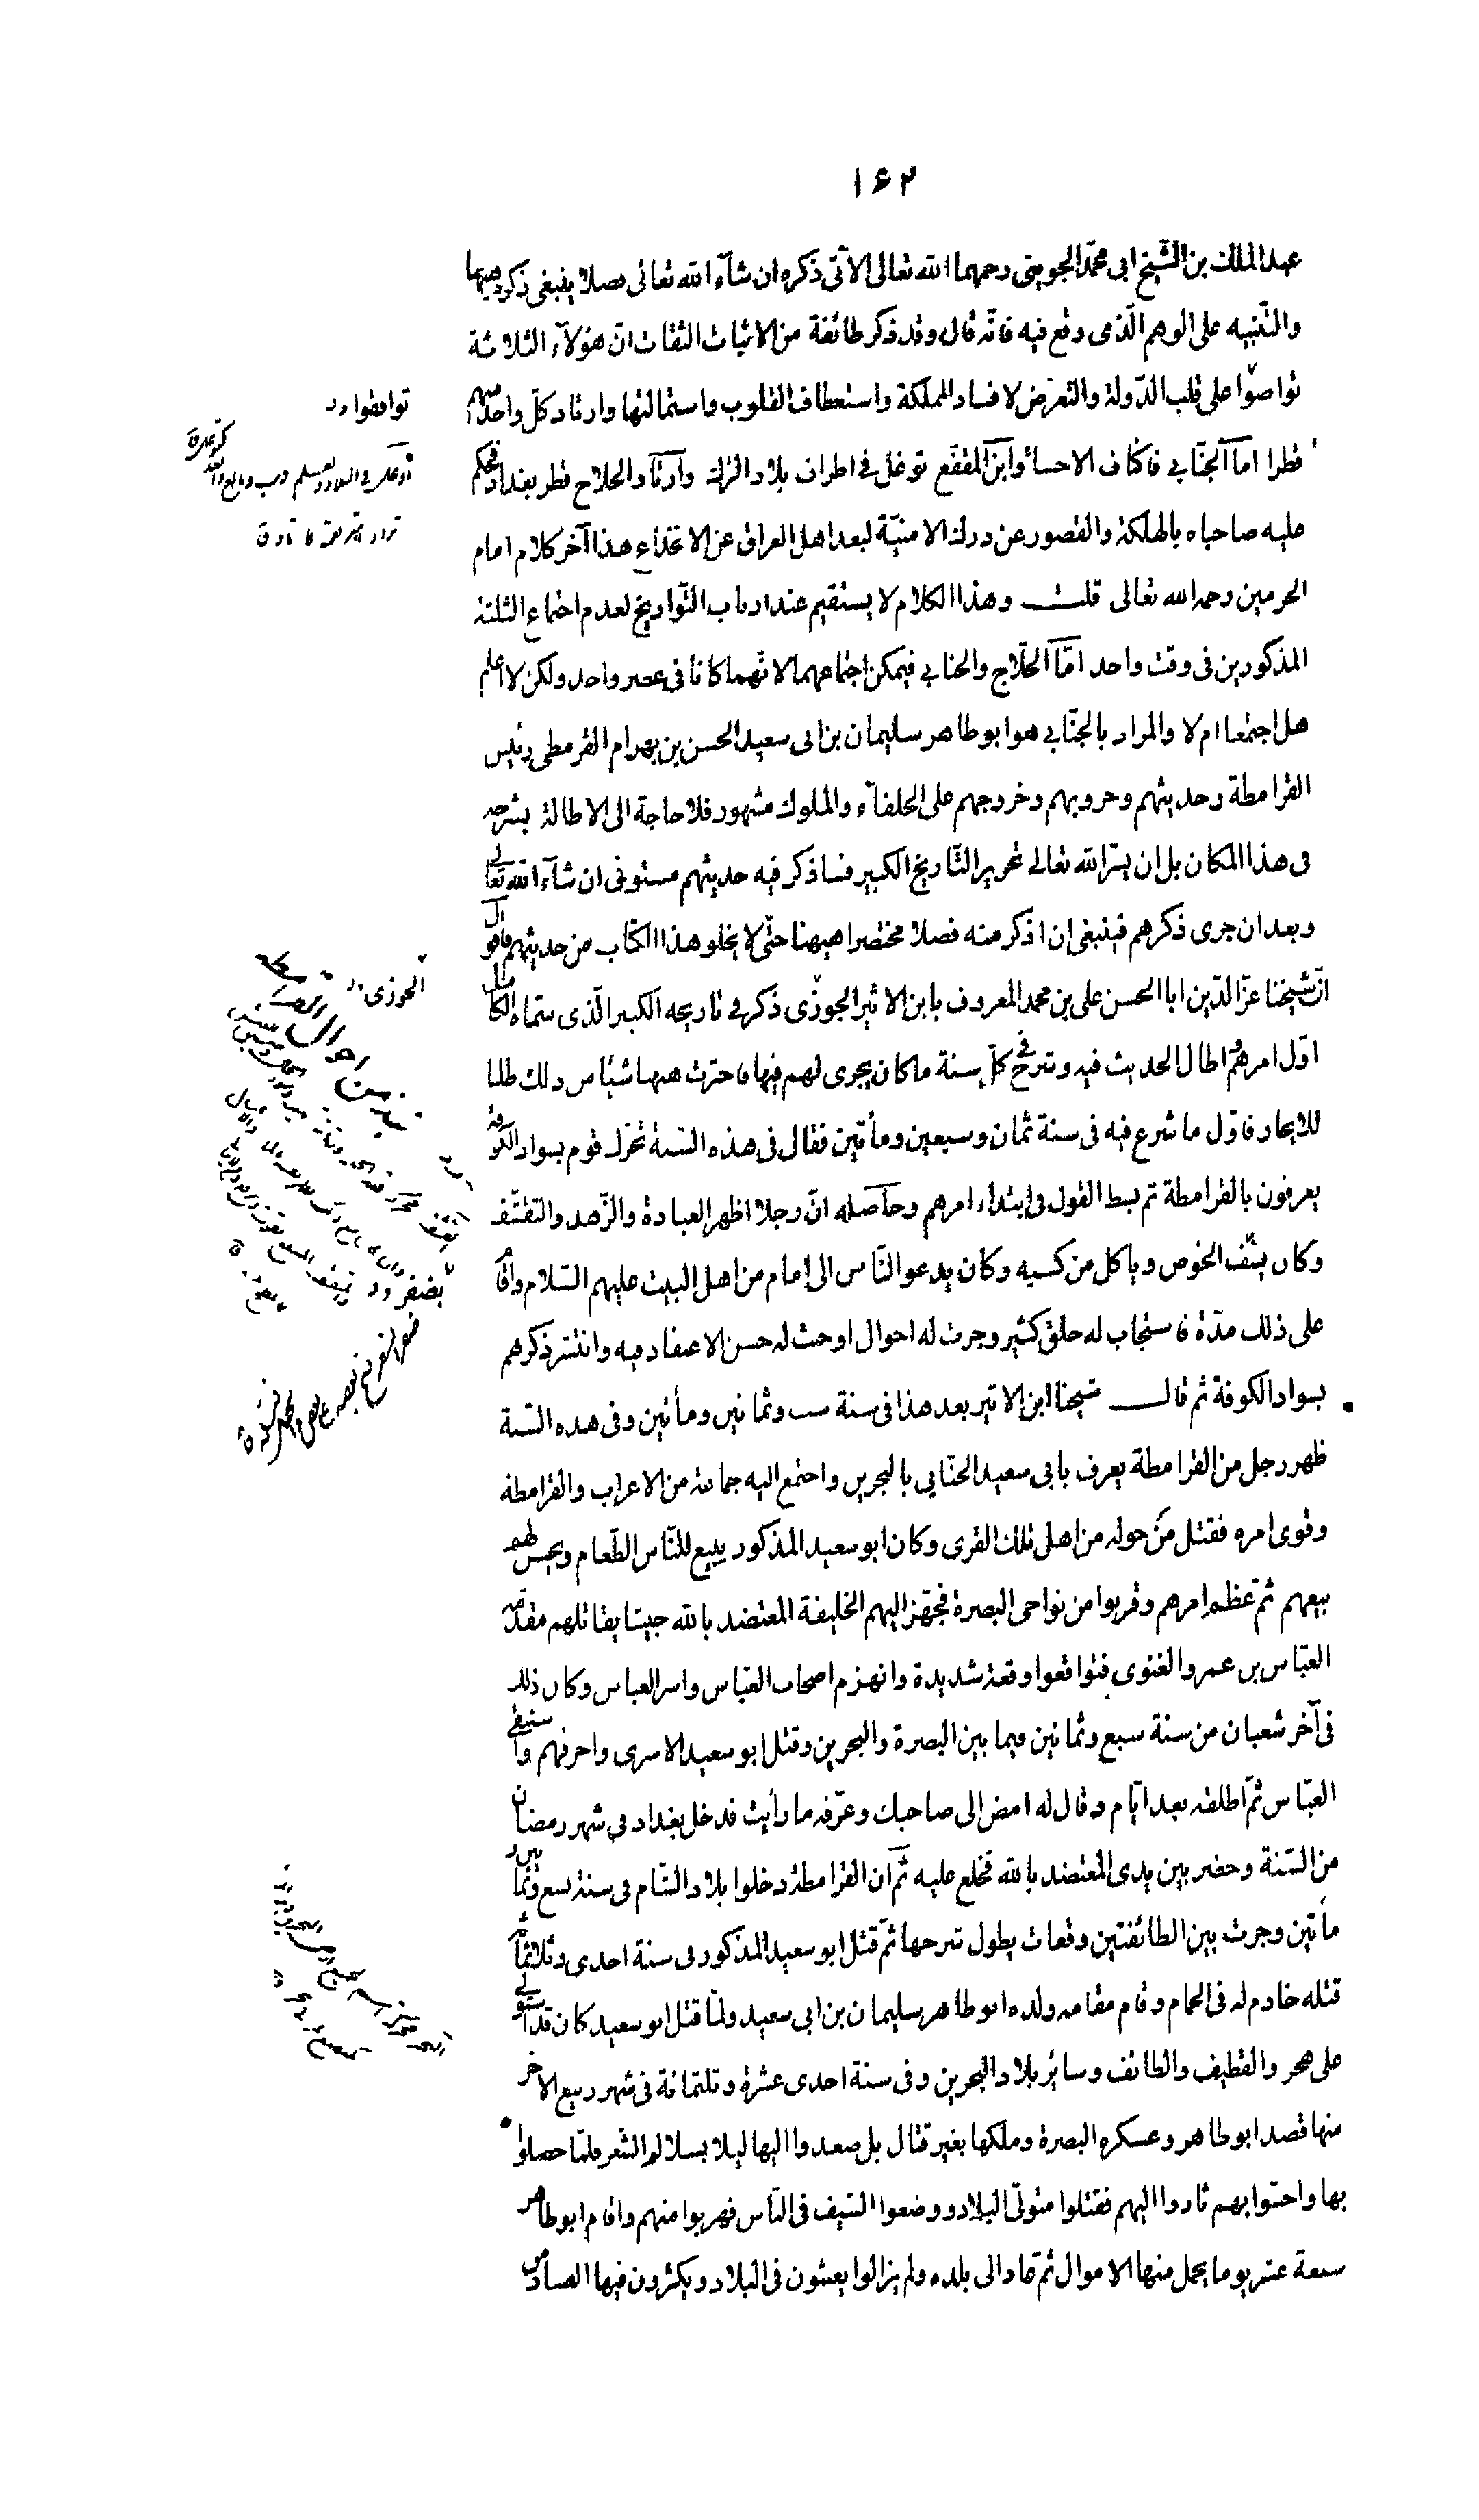 ١٤٢
عبد الملك بن الشيخ ابى محمد الجوينى رحمهما الله تعالى الآتى ذكره ان شآء الله تعالى فصلا ينبغى ذكره هيهنا
والتّنبيه على الوهم الّذى وقع فيه فانّه قال وقد ذكر طائفة من الاثبات الثقات انّ هؤلآء الثلاثة
تواصوا على قلب الدّولة والتعرّض لافساد المملكة واستعطاف القلوب واستمالتها وارتاد كلّ واحد منهم
قطرا امّا الجنّابى فاكناف الاحسا وابن المقفّع توغل فى اطراف بلاد الترك وارتاد الحلاج قطر بغداد فحكم
عليه صاحباه بالهلكة والقصور عن درك الامنيّة لبعد اهل العراق عن الانخداع هذا آخر كلام امام
الحرمين رحمه الله تعالى قلت وهذا الكلام لا يستقيم عند ارباب التّواريخ لعدم اجتماع الثلثة
المذكورين فى وقت واحد امّا الحلّاج والجنابى فيمكن اجتماعهما لانّهما كانا فى عصر واحد ولكن لا اعلم
هل اجتمعا ام لا والمراد بالجنّابى هو ابو طاهر سليمان بن ابى سعيد الحسن بن بهرام القرمطى رئيس
القرامطة وحديثهم وحروبهم وخروجهم على الخلفآء والملوك مشهور فلا حاجة الى الاطالة بشرحه
فى هذا المكان بل ان يسّر الله تعالى تحرير التّاريخ الكبير فساذكر فيه حديثهم مستوفى ان شآء الله تعالى
وبعد ان جرى ذكرهم فينبغى ان اذكر منه فصلا مختصرا هيهنا حتّى لا يخلو هذا الكتاب من حديثهم فاقول
انّ شيخنا عزّ الدّين ابا الحسن على بن محمد المعروف بابن الاثير الجوزى ذكر فى تاريخه الكبير الّذى سمّاه الكامل
اوّل امرهم واطال الحديث فيه وشرح فى كلّ سنة ما كان يجرى لهم فيها فاخترت ههنا شيئا من ذلك طلبا
للايجاز فاوّل ما شرع فيه فى سنة ثمان وسبعين ومأتين فقال فى هذه السّنة تحرّك قوم بسواد الكوفة
يعرفون بالقرامطة ثم بسط القول فى ابتداء امرهم وحاصله انّ رجلا اظهر العبادة والزّهد والتقشّف
وكان يسفّ الخوص وياكل من كسبه وكان يدعو النّاس الى امام من اهل البيت عليهم السّلام واقام
على ذلك مدّة فاستجاب له خلق كثير وجرت له احوال اوجبت له حسن الاعتقاد فيه وانتشر ذكرهم
بسواد الكوفة ثم قال شيخنا ابن الاثير بعد هذا فى سنة ست وثمانين ومأتين وفى هذه السّنة
ظهر رجل من القرامطة يعرف بابى سعيد الجنّابى بالبحرين واجتمع اليه جماعة من الاعراب والقرامطة
وقوى امره فقتل من حوله من اهل تلك القرى وكان ابو سعيد المذكور يبيع للنّاس الطّعام ويحسب لهم
بيعهم ثمّ عظم امرهم وقربوا من نواحى البصرة فجهّز اليهم الخليفة المعتضد بالله جيشا يقاتلهم مقدّمه
العبّاس بن عمرو الغنوى فتواقعوا وقعة شديدة وانهزم اصحاب العبّاس واسر العباس وكان ذلك
فى آخر شعبان من سنة سبع وثمانين فيما بين البصرة والبحرين وقتل ابو سعيد الاسرى واحرقهم واستبقى
العبّاس ثمّ اطلقه بعد ايّام وقال له امض الى صاحبك وعرّفه ما رأيت فدخل بغداد فى شهر رمضان
من السّنة وحضر بين يدى المعتضد بالله فخلع عليه ثمّ ان القرامطة دخلوا بلاد الشام فى سنة تسع وثمانين و
مأتين وجرت بين الطائفتين وقعات يطول شرحها ثمّ قتل ابو سعيد المذكور فى سنة احدى وثلاثمائة
قتله خادم له فى الحمام وقام مقامه ولده ابو طاهر سليمان بن ابى سعيد ولمّا قتل ابو سعيد كان قد استولى
على هجر والقطيف والطائف وسائر بلاد البحرين وفى سنة احدى عشرة وثلثمائة فى شهر ربيع الآخر
منها قصد ابو طاهر وعسكره البصرة وملكها بغير قتال بل صعدوا اليها ليلا بسلالم الشّعر فلمّا حصلوا
بها واحسّوا بهم ثاروا اليهم فقتلوا متولّى البلاد ووضعوا السّيف فى النّاس فهربوا منهم واقام ابو طاهر
سبعة عشر يوما يحمل منها الاموال ثمّ عاد الى بلده ولم يزالوا يعيثون فى البلاد ويكثرون فيها الفساد من
توافقوا
الجوزى
نبذ من احوال القرامطة